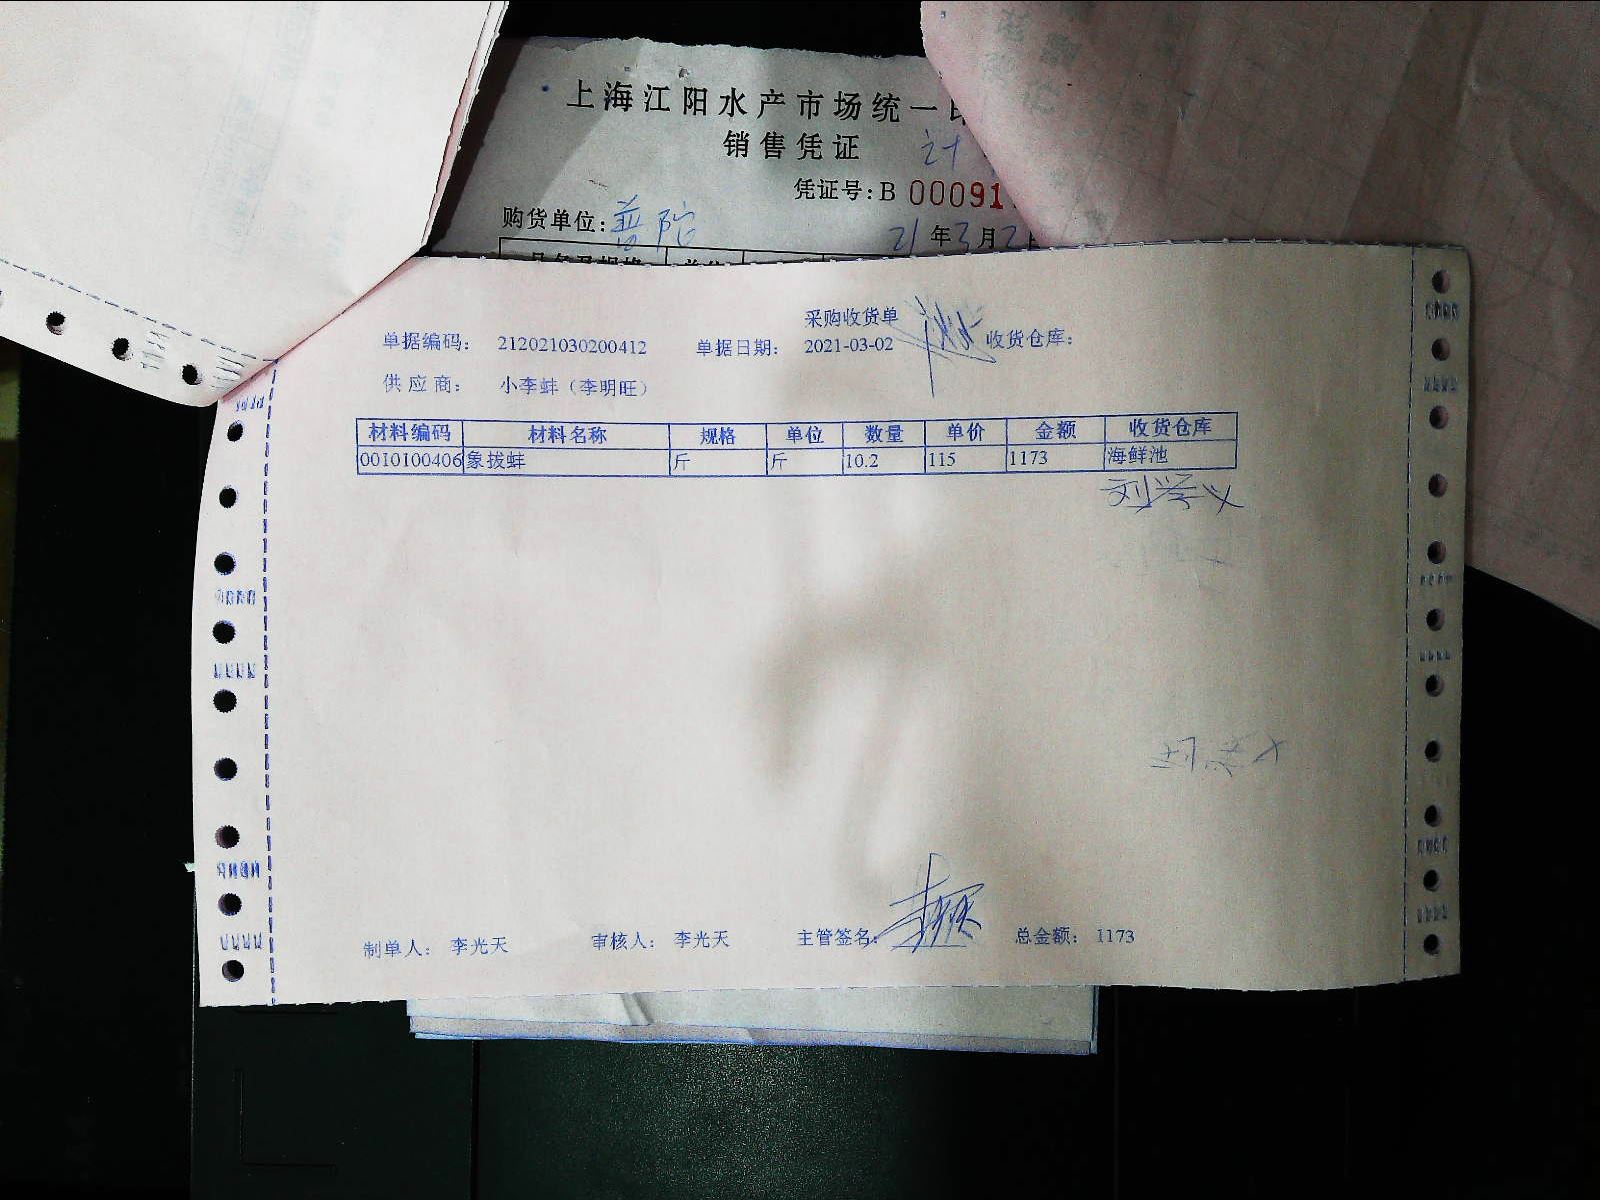 上海江阳水产市场统一
销售凭证 计
凭证号:B 00091
购货单位:普陀 21年3月2日
品名及规格 单位
采购收货单
单据编码: 212021030200412 单据日期: 2021-03-02 收货仓库:
供应商: 小李蚌（李明旺）
材料编码 材料名称 规格 单位 数量 单价 金额 收货仓库
0010100406 象拔蚌 斤 斤 10.2 115 1173 海鲜池
制单人: 李光天 审核人: 李光天 主管签名: 总金额: 1173